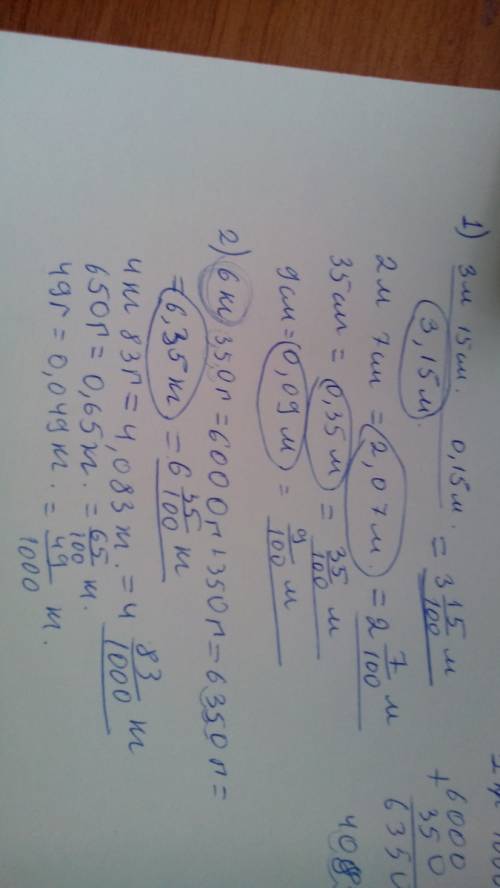 1) 3м 15см. 0,15м.
3,15м. = 3 15/100 м
2м 7см = 2,07м. = 2 7/100 м
35см = 0,35м = 35/100 м
9см = 0,09м = 9/100 м
2) 6кг 350г = 6000г + 350г = 6350г =
= 6,35кг = 6 35/100 кг
4кг 83г = 4,083кг. = 4 83/1000 кг
650г = 0,65кг. = 65/100 кг.
49г = 0,049кг. = 49/1000 кг.
6000
+ 350
6350